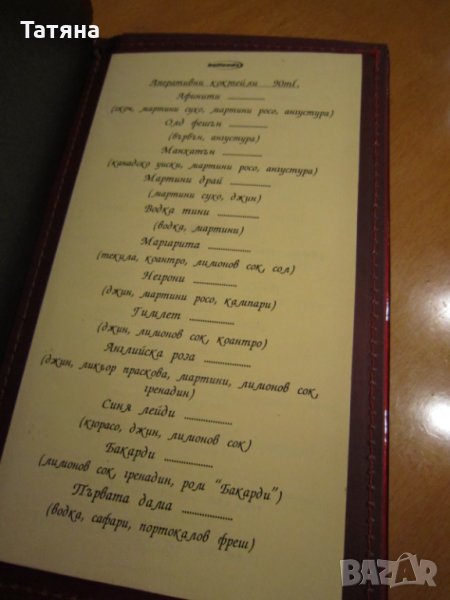 Татяна
Аперативни коктейли 90ml.
Афинити ...............
(скоч, мартини сухо, мартини росо, ангустура)
Олд фешън ...............
(бърбън, ангустура)
Манхатън ...............
(канадско уиски, мартини росо, ангустура)
Мартини драй ...............
(мартини сухо, джин)
Водка тини ...............
(водка, мартини)
Маргарита ...............
(текила, коантро, лимонов сок, сол)
Негрони ...............
(джин, мартини росо, кампари)
Гимлет ...............
(джин, лимонов сок, коантро)
Английска роза ...............
(джин, ликьор праскова, мартини, лимонов сок,
гренадин)
Синя лейди ...............
(кюрасо, джин, лимонов сок)
Бакарди ...............
(лимонов сок, гренадин, ром "Бакарди")
Първата дама ...............
(водка, сафари, портокалов фреш)
BAZAR